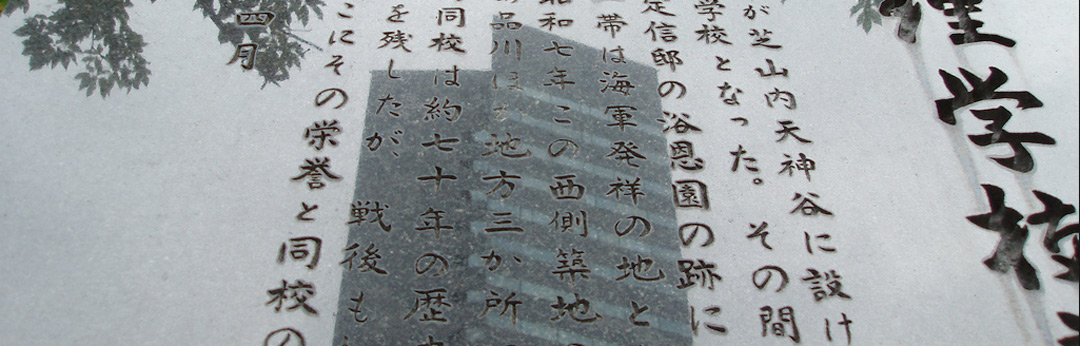 学校
が芝山内天神谷に設け
学校となった。その間
定信邸の浴恩園の跡に
帯は海軍発祥の地と
昭和七年この西側築地の
品川ほか地方三か所
同校は約七十年の歴
を残したが、戦後も
こにその栄誉と同校の
四月